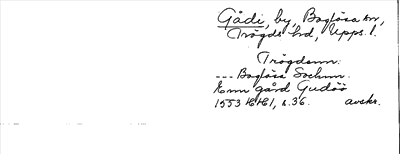 Gådi, by, Boglösa sn,
Trögds hd, Upps. l.
Trögdenn.
--- Boglösa Sochnn.
Enn gård Gudöö
1553 HH1, s. 36. avskr.